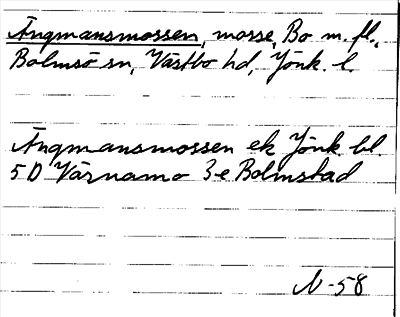 Ängmansmossen, mosse, Bo m. fl.,
Bolmsö sn, Västbo hd, Jönk. l.
Ängmansmossen ek Jönk. bl.
5D Värnamo 3-e Bolmstad
N-58